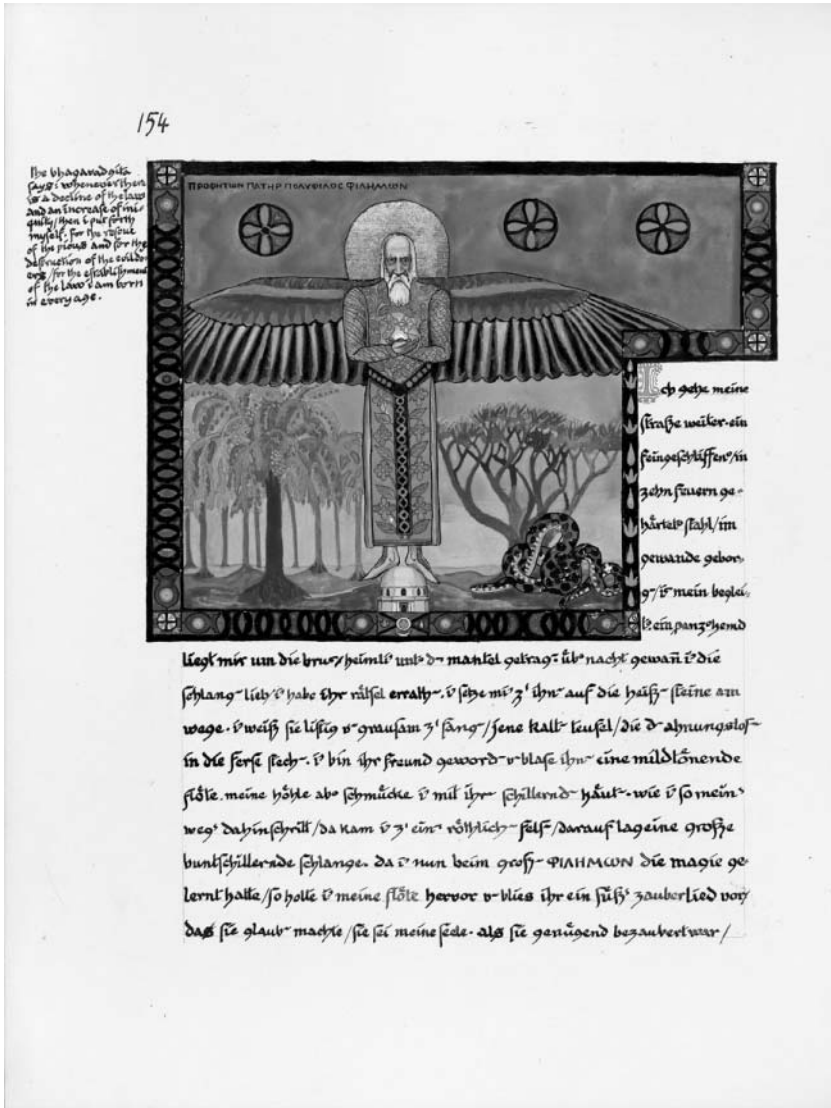 154
the bhagavadgita
says: whenever there
is a decline of the law
and an increase of ini-
quity/then i put forth
myself. for the rescue
of the pious and for the
destruction of the evildo-
ers/for the establishment
of the law i am born
in every age.
ΠΡΟΦΗΤΩΝ ΠΑΤΗΡ ΠΟΛΥΦΙΛΟΣ ΦΙΛΗΜΩΝ
Ich gehe meine
straße weiter. ein
feingeschliffen/in
zehn feuern ge-
härtet stahl/im
gewande gebor-
g/ist mein beglei-
t. ein panz hemd
liegt mir um die brust/heimli unt d mantel getrag. üb nacht gewañ i die
schlang lieb/i habe ihr rätsel errath. i setze mi z' ihn auf die heiß steine am
wege. i weiß sie listig u grausam z' fang/jene kalt teufel/die d ahnungslos
in die ferse stech. i bin ihr freund geword u blase ihn eine mildtönende
flöte. meine höhle ab schmücke i mit ihr schillernd häut. wie i so mein
weg dahinschritt/da kam i z' ein röthlich fels/darauf lag eine große
buntschillernde schlange. da i nun beim groß ΦΙΛΗΜΩΝ die magie ge-
lernt hatte/so holte i meine flöte hervor u blies ihr ein süß zauberlied vor/
das sie glaub machte/sie sei meine seele. als sie genügend bezaubert war/